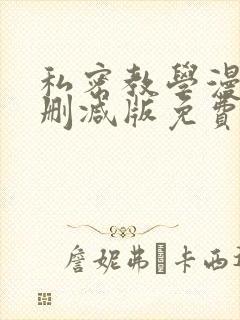 私密教學漫
删减版免費
詹妮弗·卡西